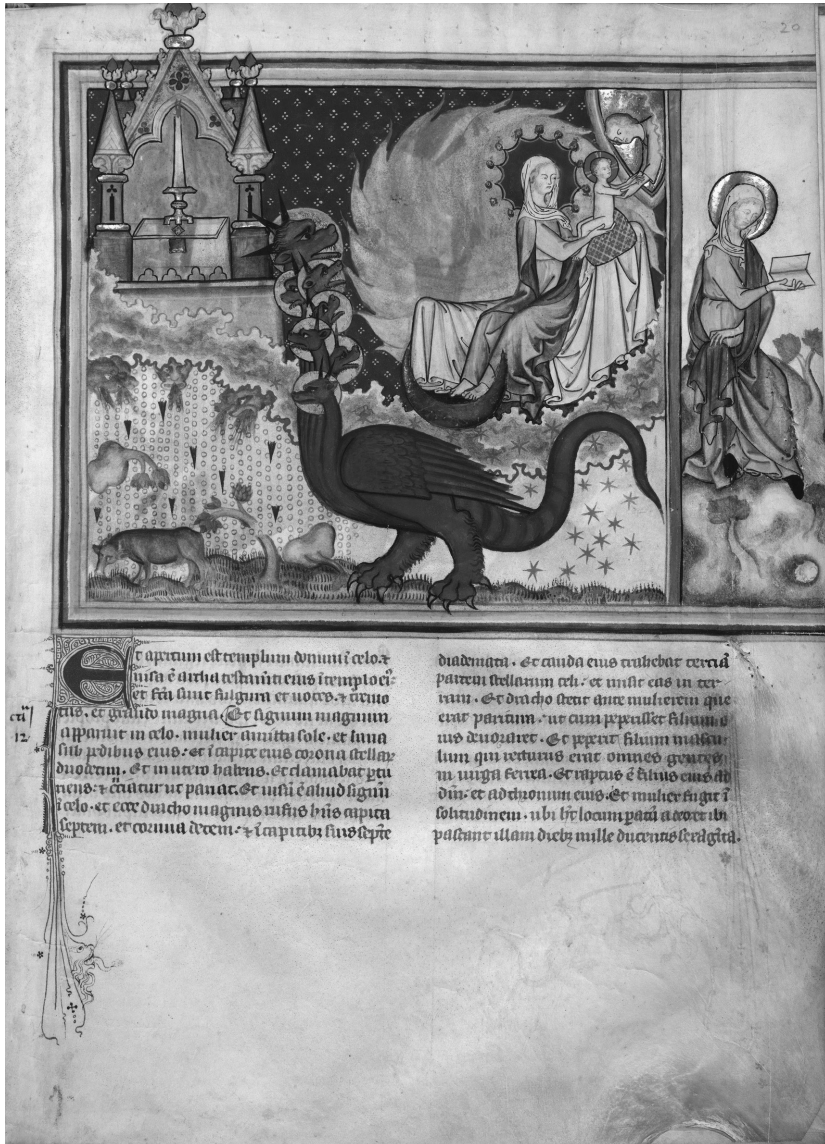 20
Et apertum est templum domini ĩ celo. ⁊
uisa ẽ archa testamti eius ĩ templo ei᷒
et fc̃a sunt fulgura et uoces. ⁊ tremo
tus. et grando magna. Et signum magnum
apparuit in celo. mulier amicta sole. et luna
sub pedibus eius. et ĩ capite eius corona stellar
duodecim. Et in utero habens. Et clamabat ꝑtu
riens. ⁊ cruciatur ut pariat. Et uisũ ẽ aliud signũ
ĩ celo. et ecce dracho magnus rufus hñs capita
septem. et cornua decem. ⁊ ĩ capitibꝫ suis septe
12
diademata. Et cauda eius trahebat terciã
partem stellarum celi. et misit eas in ter
ram. Et dracho stetit ante mulierem que
erat paritura. ut cum peperisset filium e
ius deuoraret. Et peperit filium mascu
lum qui recturus erat omnes gentes
in uirga ferrea. Et raptus ẽ filius eius ad
dm̃. et ad thronum eius. Et mulier fugit ĩ
solitudinem. ubi hꝫ locum ꝑatũ a deo et ibi
pascant illam diebꝫ mille ducentis sexagĩta.